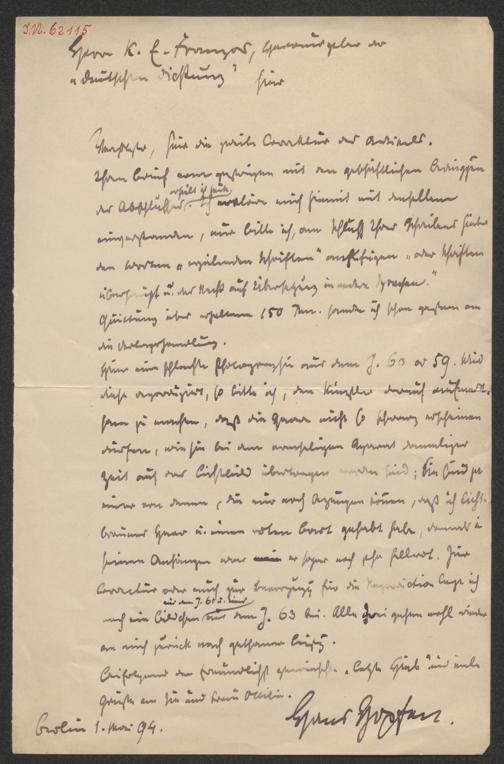 I.N. 62115
Herrn K. E. Franzos, Herausgeber der
„Deutschen Dichtung" hier
Verehrter, hier die zweite Correktur des Artikels.
Ihren Brief vom gestrigen mit den geschäftlichen Bedingungen
des Abschlusses, erhielt ich heute, ich erkläre mich hiemit mit denselben
einverstanden, nur bitte ich, am Schluß Ihres Schreibens hinter
den Worten „erzählenden Schriften" anzufügen „oder Schriften
überhaupt u. das Recht auf Übersetzung in andere Sprachen."
Quittung über erhaltene 150 Mk. sende ich schon gestern an
die Verlagshandlung.
Hier eine schlechte Photographie aus dem J. 60 or 59. Wird
diese reproduzirt, so bitte ich, den Künstler darauf aufmerk-
sam zu machen, daß die Haare nicht so schwarz erscheinen
dürfen, wie sie bei dem armseligen Apparat damaliger
Zeit auf das Lichtbild übertragen worden sind; Sie sind ja
einer von denen, die mir noch bezeugen können, daß ich licht-
braunes Haar u. einen roten Bart gehabt habe, damals in
seinen Anfängen war er sogar noch sehr hellrot. Zur
Correctur oder auch zur Bevorzugung für die Reproduction lege ich
noch ein Bildchen aus dem J. 61 u. eines aus dem J. 63 bei. Alle drei gehen wohl wieder
an mich zurück nach gethaner
beifolgend der freundlichst gewünschte „letzte Hieb" und viele
Grüße an Sie und Frau Ottilie.
Hans Hopfen.
Berlin 1. Mai 94.